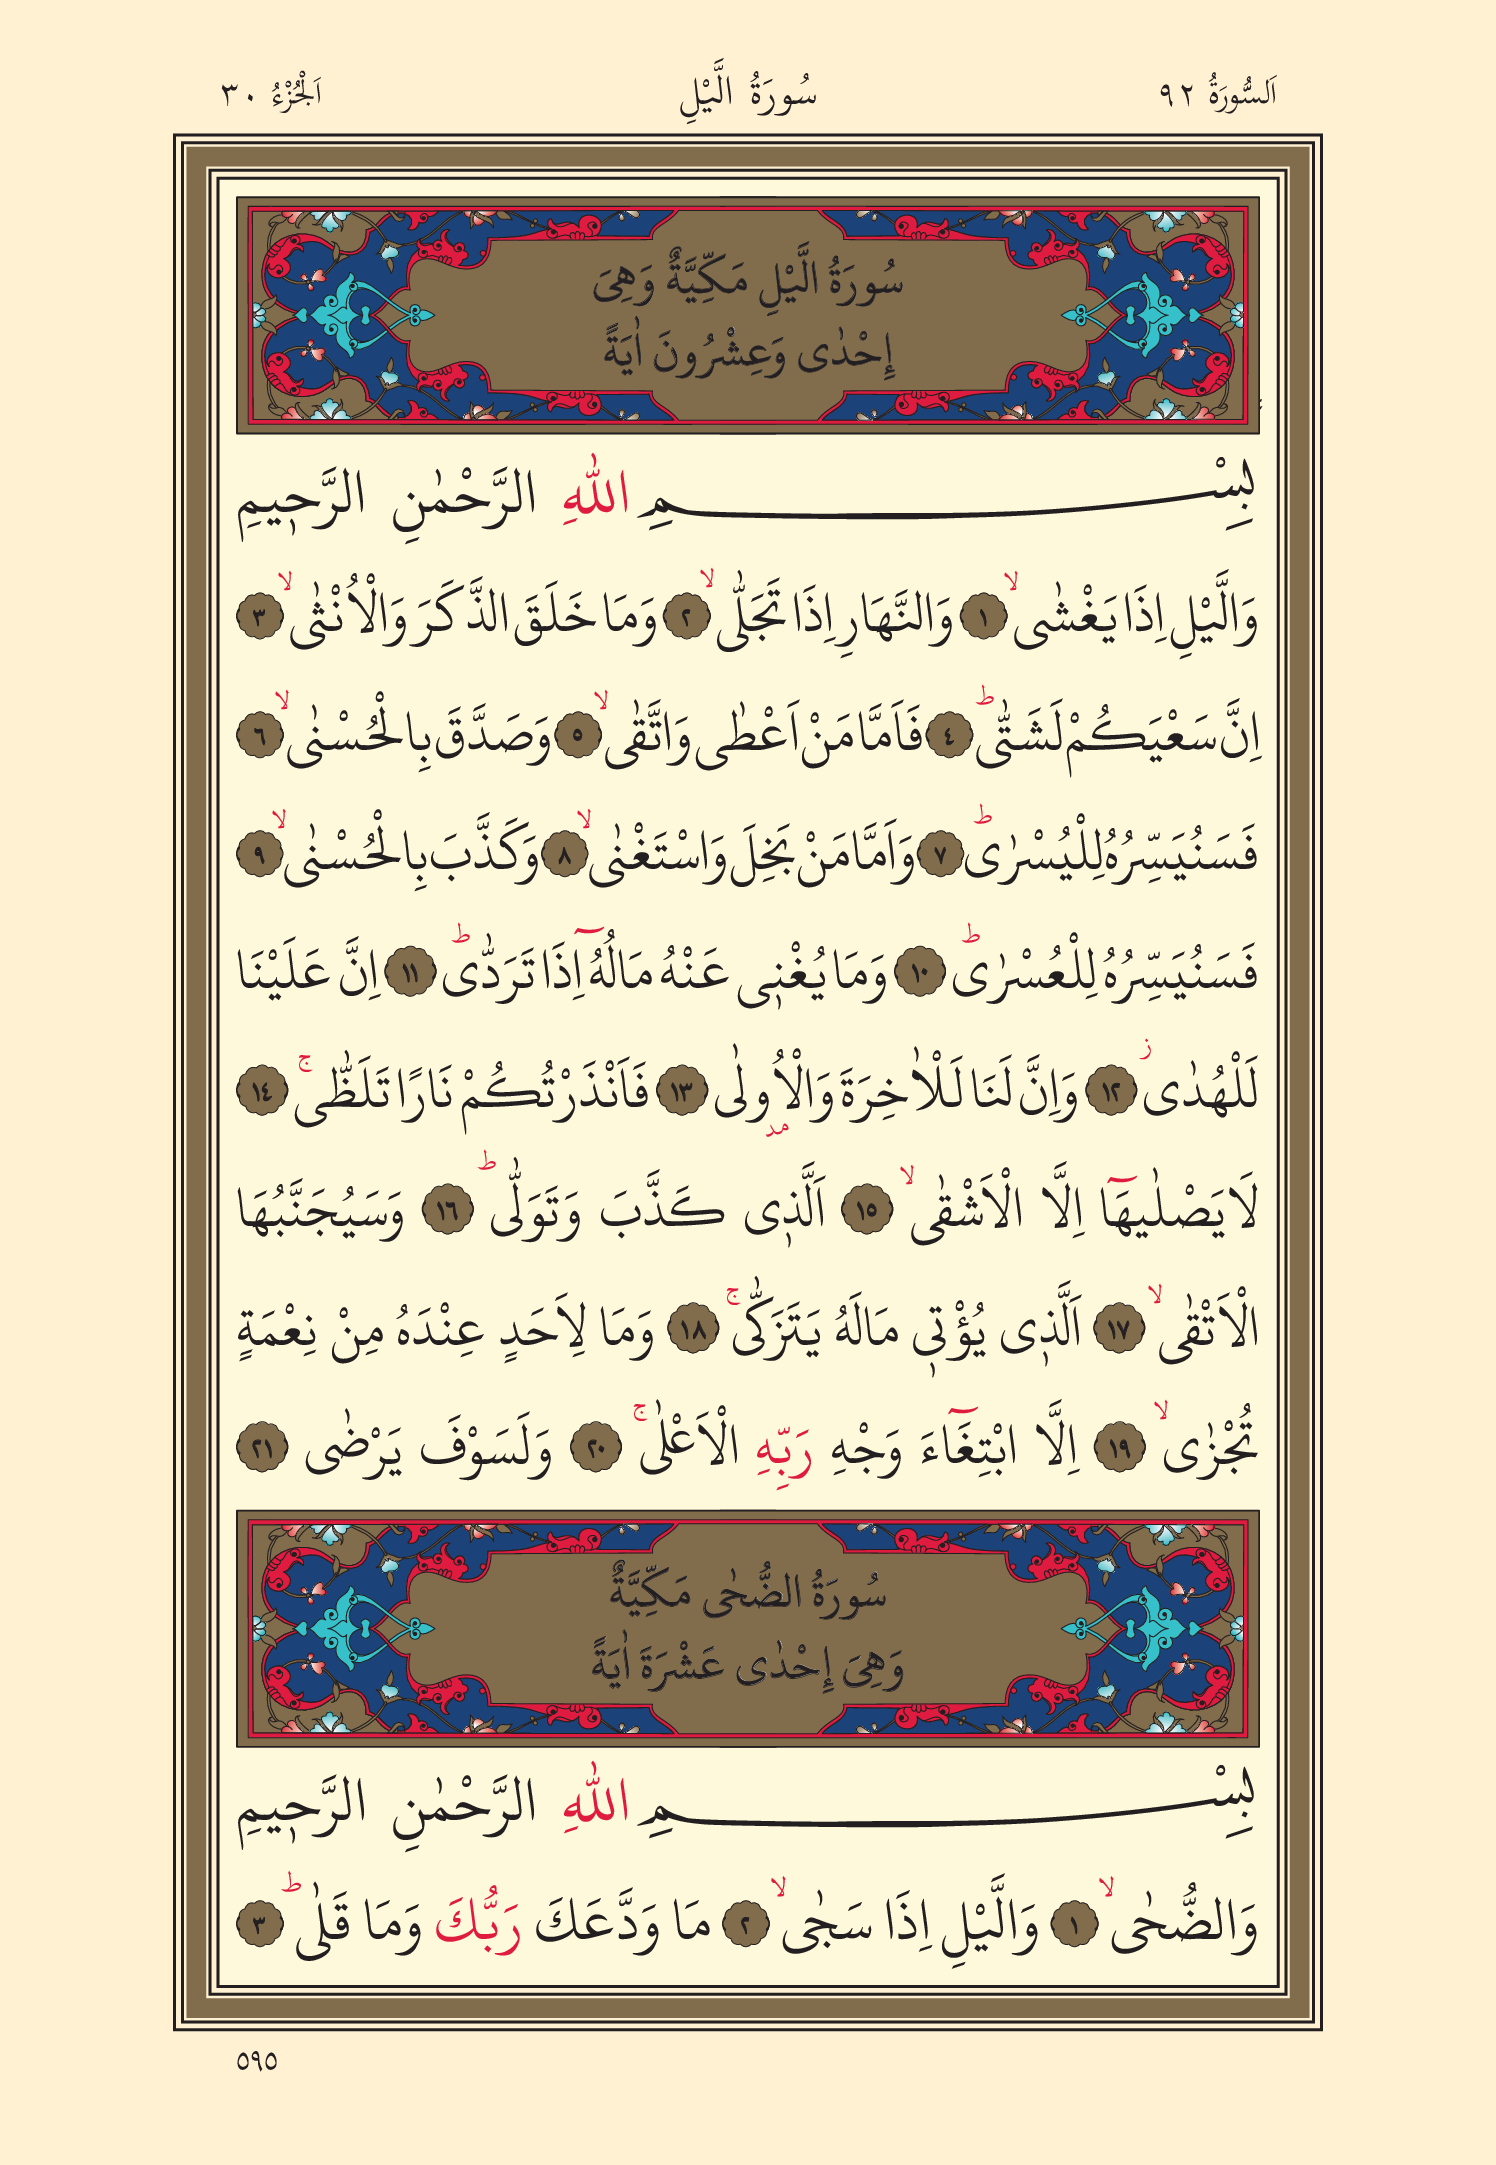 اَلسُّورَةُ ٩٢ سُورَةُ الَّيْلِ اَلْجُزْءُ ٣٠
سُورَةُ الَّيْلِ مَكِّيَّةٌ وَهِىَ
إِحْدٰى وَعِشْرُونَ اٰيَةً
بِسْــــــــــمِ اللّٰهِ الرَّحْمٰنِ الرَّح۪يمِ
وَالَّيْلِ اِذَا يَغْشٰىۙ ﴿١﴾ وَالنَّهَارِ اِذَا تَجَلّٰىۙ ﴿٢﴾ وَمَا خَلَقَ الذَّكَرَ وَالْاُنْثٰىۙ ﴿٣﴾
اِنَّ سَعْيَكُمْ لَشَتّٰىۜ ﴿٤﴾ فَاَمَّا مَنْ اَعْطٰى وَاتَّقٰىۙ ﴿٥﴾ وَصَدَّقَ بِالْحُسْنٰىۙ ﴿٦﴾
فَسَنُيَسِّرُهُ لِلْيُسْرٰىۜ ﴿٧﴾ وَاَمَّا مَنْ بَخِلَ وَاسْتَغْنٰىۙ ﴿٨﴾ وَكَذَّبَ بِالْحُسْنٰىۙ ﴿٩﴾
فَسَنُيَسِّرُهُ لِلْعُسْرٰىۜ ﴿١٠﴾ وَمَا يُغْن۪ى عَنْهُ مَالُهُٓ اِذَا تَرَدّٰىۜ ﴿١١﴾ اِنَّ عَلَيْنَا
لَلْهُدٰىۘ ﴿١٢﴾ وَاِنَّ لَنَا لَلْاٰخِرَةَ وَالْاُو۫لٰى ﴿١٣﴾ فَاَنْذَرْتُكُمْ نَارًا تَلَظّٰىۚ ﴿١٤﴾
لَا يَصْلٰيهَٓا اِلَّا الْاَشْقٰىۙ ﴿١٥﴾ اَلَّذ۪ى كَذَّبَ وَتَوَلّٰىۜ ﴿١٦﴾ وَسَيُجَنَّبُهَا
الْاَتْقٰىۙ ﴿١٧﴾ اَلَّذ۪ى يُؤْت۪ى مَالَهُ يَتَزَكّٰىۚ ﴿١٨﴾ وَمَا لِاَحَدٍ عِنْدَهُ مِنْ نِعْمَةٍ
تُجْزٰىۙ ﴿١٩﴾ اِلَّا ابْتِغَٓاءَ وَجْهِ رَبِّهِ الْاَعْلٰىۚ ﴿٢٠﴾ وَلَسَوْفَ يَرْضٰى ﴿٢١﴾
سُورَةُ الضُّحٰى مَكِّيَّةٌ
وَهِىَ إِحْدٰى عَشْرَةَ اٰيَةً
بِسْــــــــــمِ اللّٰهِ الرَّحْمٰنِ الرَّح۪يمِ
وَالضُّحٰىۙ ﴿١﴾ وَالَّيْلِ اِذَا سَجٰىۙ ﴿٢﴾ مَا وَدَّعَكَ رَبُّكَ وَمَا قَلٰىۜ ﴿٣﴾
٥٩٥